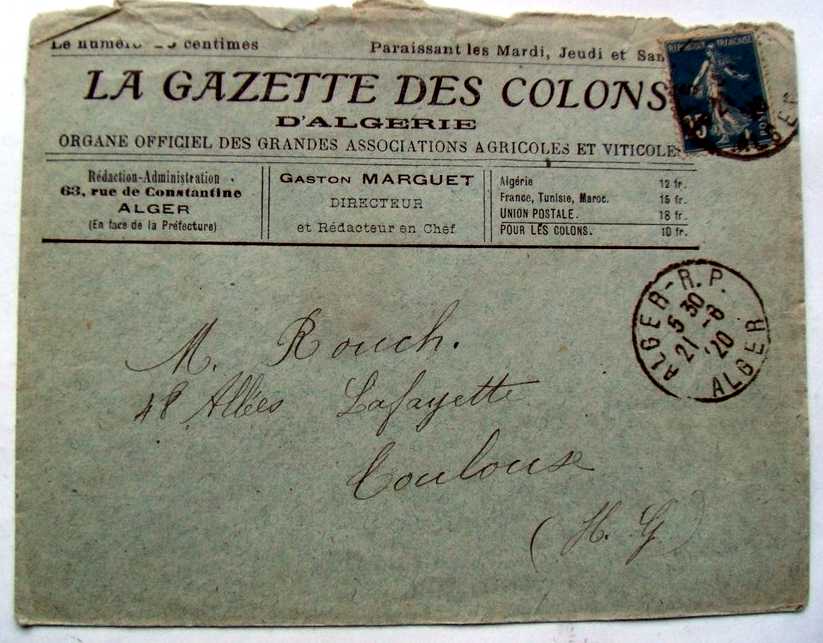 Le numéro centimes Paraissant les Mardi, Jeudi et
LA GAZETTE DES COLONS
D'ALGERIE
ORGANE OFFICIEL DES GRANDES ASSOCIATIONS AGRICOLES ET VITICOLES
Rédaction-Administration
63, rue de Constantine
ALGER
(En face de la Préfecture)
GASTON MARGUET
DIRECTEUR
et Rédacteur en Chef
Algérie 12 fr.
France, Tunisie, Maroc. 15 fr.
UNION POSTALE. 18 fr.
POUR LES COLONS. 10 fr.
REPUBLIQUE FRANÇAISE
25
POSTES
ALGER-R.P.
5 30
21 -8
'20
ALGER
M. Rouch.
48 Allées Lafayette
Toulouse
(H. G)